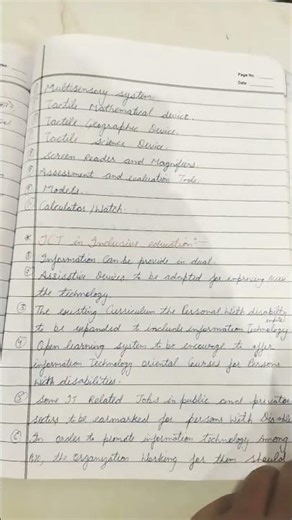 Page No.
Date
Multisensory system
Tactile Mathematical device.
Tactile Geographic Device.
Tactile Science Device
Screen Reader and Magnifiers.
Assessment and evaluation Tools.
Models.
Calculator / Watch.
* ICT in Inclusive education"
① Information Can be provide in dual.
② Assistive Devices to be adapted for improving
the technology.
③ The existing Curriculum the Personal with disability
to be expanded to include information Technology
④ Open learning system to be encourage to offer
information Technology oriental Courses for Persons
with disabilities.
⑤ Some IT Related Jobs in public and
sector to be earmarked for persons with
⑥ In order to promote information technology Among
the Organization Working for them should